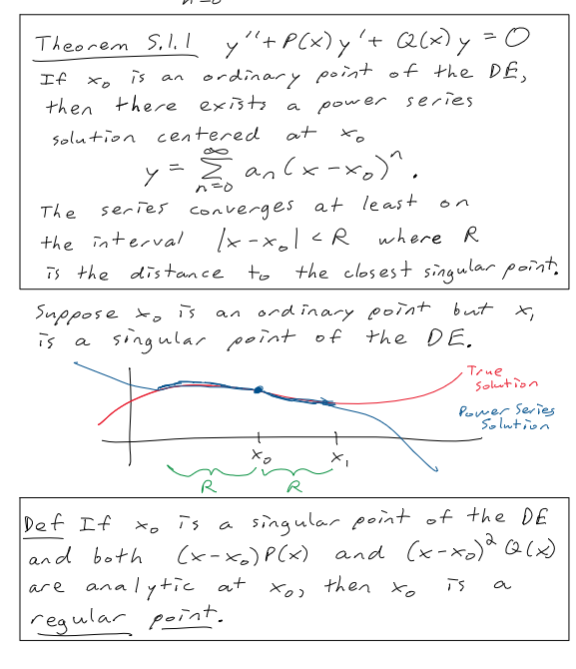 n=0
Theorem 5.1.1 y'' + P(x) y' + Q(x) y = 0
If x₀ is an ordinary point of the DE,
then there exists a power series
solution centered at x₀
y = ∑_{n=0}^{∞} aₙ(x-x₀)ⁿ.
The series converges at least on
the interval |x-x₀| < R where R
is the distance to the closest singular point.
Suppose x₀ is an ordinary point but x₁
is a singular point of the DE.
True
Solution
Power Series
Solution
x₀ x₁
R R
Def If x₀ is a singular point of the DE
and both (x-x₀)P(x) and (x-x₀)² Q(x)
are analytic at x₀, then x₀ is a
regular point.